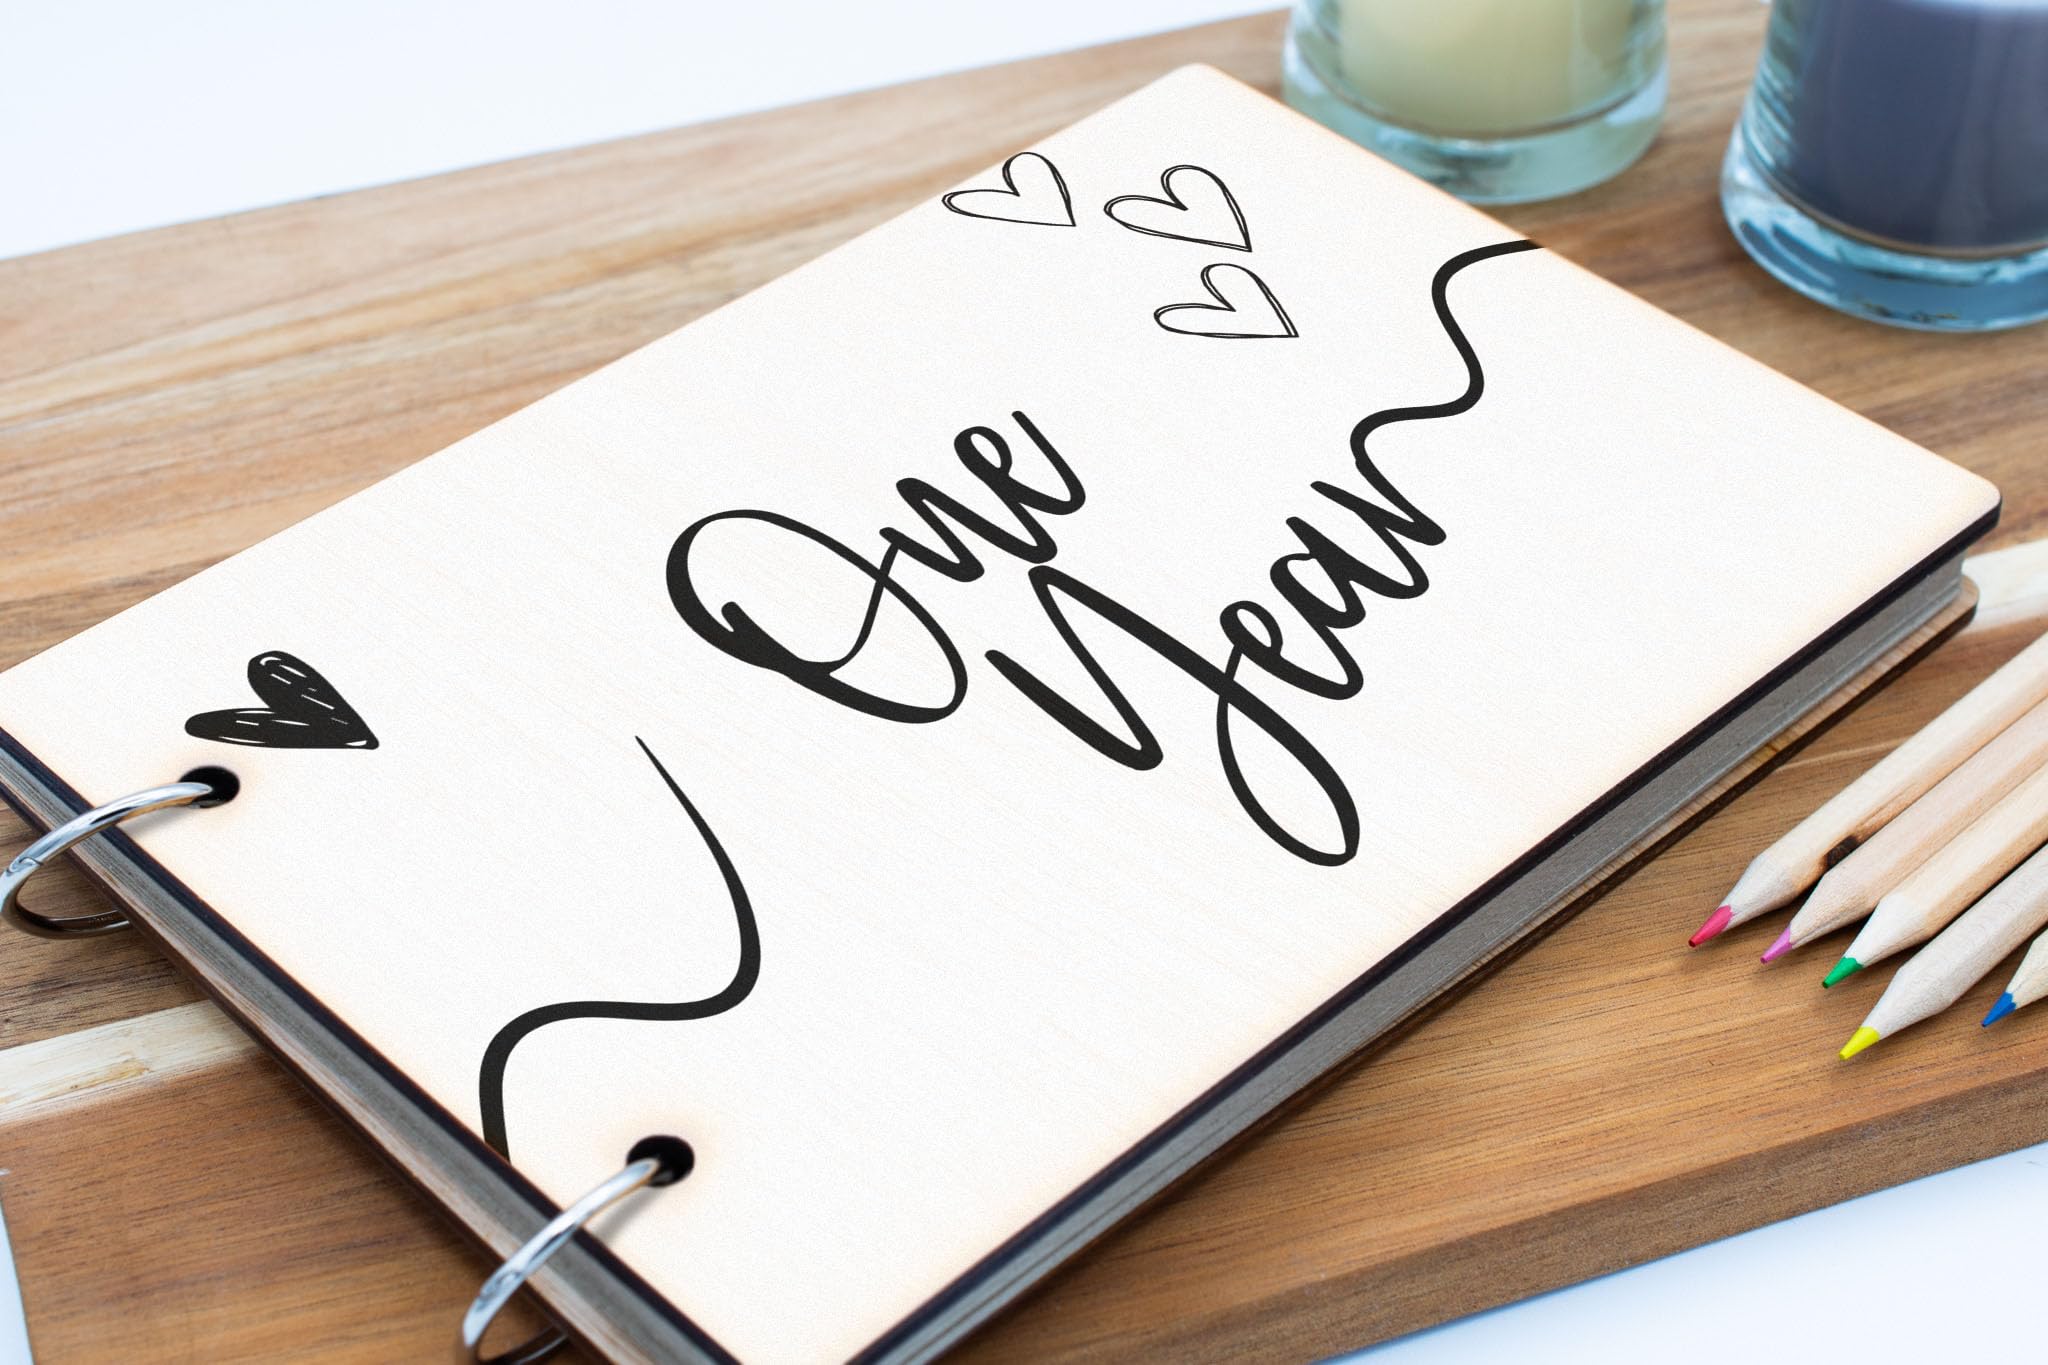 One
Year